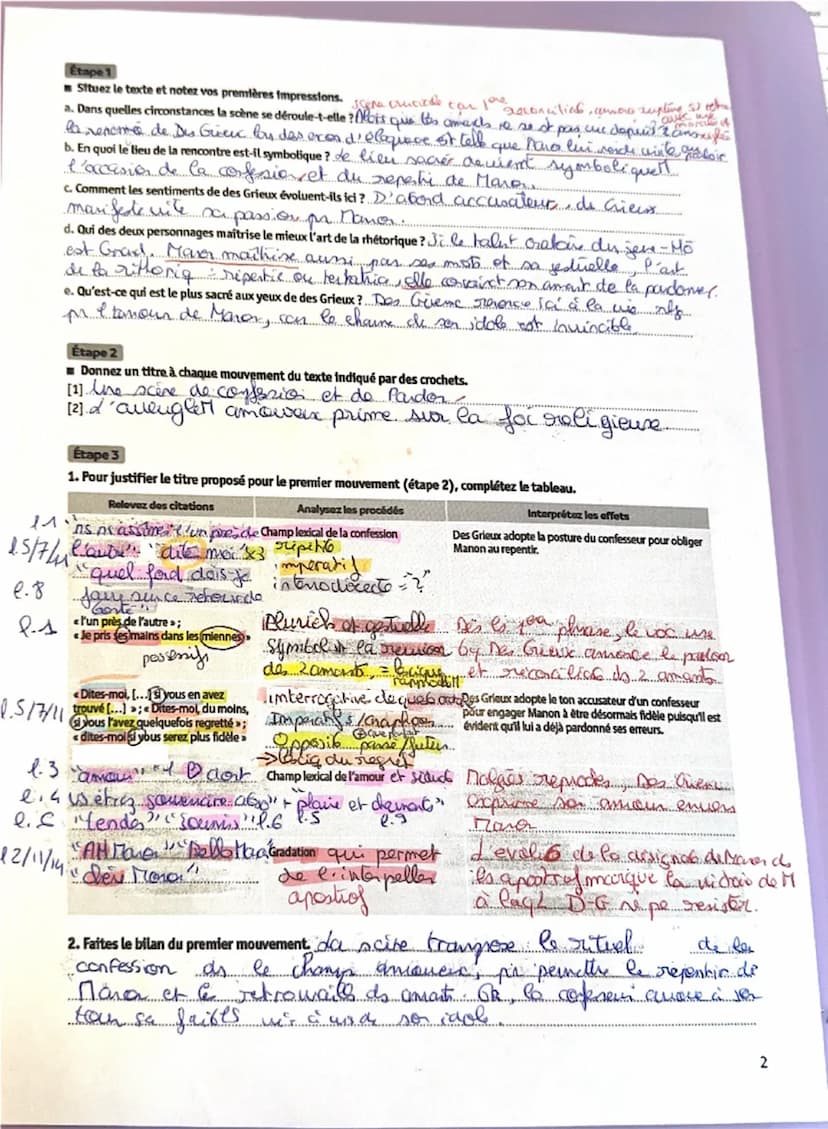 Étape 1
■ Situez le texte et notez vos premières impressions. scène cruciale car 1ère
réconciliat°, amour
a. Dans quelles circonstances la scène se déroule-t-elle ? Alors que les amants ne se st pas vue depuis 2 ans
la renomée de Des Grieux lors des exos d'éloquence est telle que Manon lui rends visite au parloir
b. En quoi le lieu de la rencontre est-il symbolique ? Le lieu sacré devient symboliquemt
l'occasion de la confession et du repenti de Manon.
c. Comment les sentiments de des Grieux évoluent-ils ici ? D'abord accusateur, de Grieux
manifeste vite sa passion pr Manon.
d. Qui des deux personnages maîtrise le mieux l'art de la rhétorique ? Si le talent oratoire du jeune
est Grand, Manon maîtrise aussi par ses mots et sa gestuelle, l'art
de la : repentie ou tentatrice, elle convainct son amant de la pardonner.
e. Qu'est-ce qui est le plus sacré aux yeux de des Grieux ? Des Grieux renonce ici à la vie
pr l'amour de Manon, car le charme de son idole est invincible
Étape 2
■ Donnez un titre à chaque mouvement du texte indiqué par des crochets.
[1] Une scène de confession et de Pardon
[2] L'aveuglemt amoureux prime sur la foi religieuse
Étape 3
1. Pour justifier le titre proposé pour le premier mouvement (étape 2), complétez le tableau.
Relevez des citations Analysez les procédés Interprétez les effets
l.1 l'un près de Champ lexical de la confession Des Grieux adopte la posture du confesseur pour obliger
l.5/7/11 l'autre" "dites moi" x3 répétit° Manon au repentir.
"quel fond dois-je impératif
l.8 faire sur ce retour de = "?"
bonté"
l.1 « l'un près de l'autre » ; et gestuelle Dès la 1ère phrase, le voc
« Je pris ses mains dans les miennes » Symbolisent la réunion by Des Grieux annonce le pardon
possessifs des 2 amants, = lexique et réconciliat° ds 2 amants
rapprochemt
« Dites-moi, [...] si vous en avez interrogative Des Grieux adopte le ton accusateur d'un confesseur
l.5/7/11 trouvé [...] » ; « Dites-moi, du moins, Impératifs / anaphore pour engager Manon à être désormais fidèle puisqu'il est
si vous l'avez quelquefois regretté » ; Opposit° passé/futur évident qu'il lui a déjà pardonné ses erreurs.
« dites-moi si vous serez plus fidèle » → lexiq du regret
l.3 "amour" "1 ♡ dont Champ lexical de l'amour et séduct° Malgrés reproches, Des Grieux
l.4 vs êtrez souveraine abso" + "plaire et charmante" exprime son amour envers
"tendre" "soumis" l.6 l.5 l.9 Manon
l2/11/14 "AH Manon" "Belle Manon" Gradation qui permet L'évolut° de la désignat° de Manon ds
"chère Manon" de l'interpeller ls apostrof marque la victoire de M
apostrof à laql D-G ne pe resister.
2. Faites le bilan du premier mouvement. La scène transpose le rituel de la
confession ds le champ amoureux, pr permettre le repentir de
Manon et le retrouvails ds amants. OR, le confesseur avoue à son
tour sa faibless vis à vis de son idole.
2